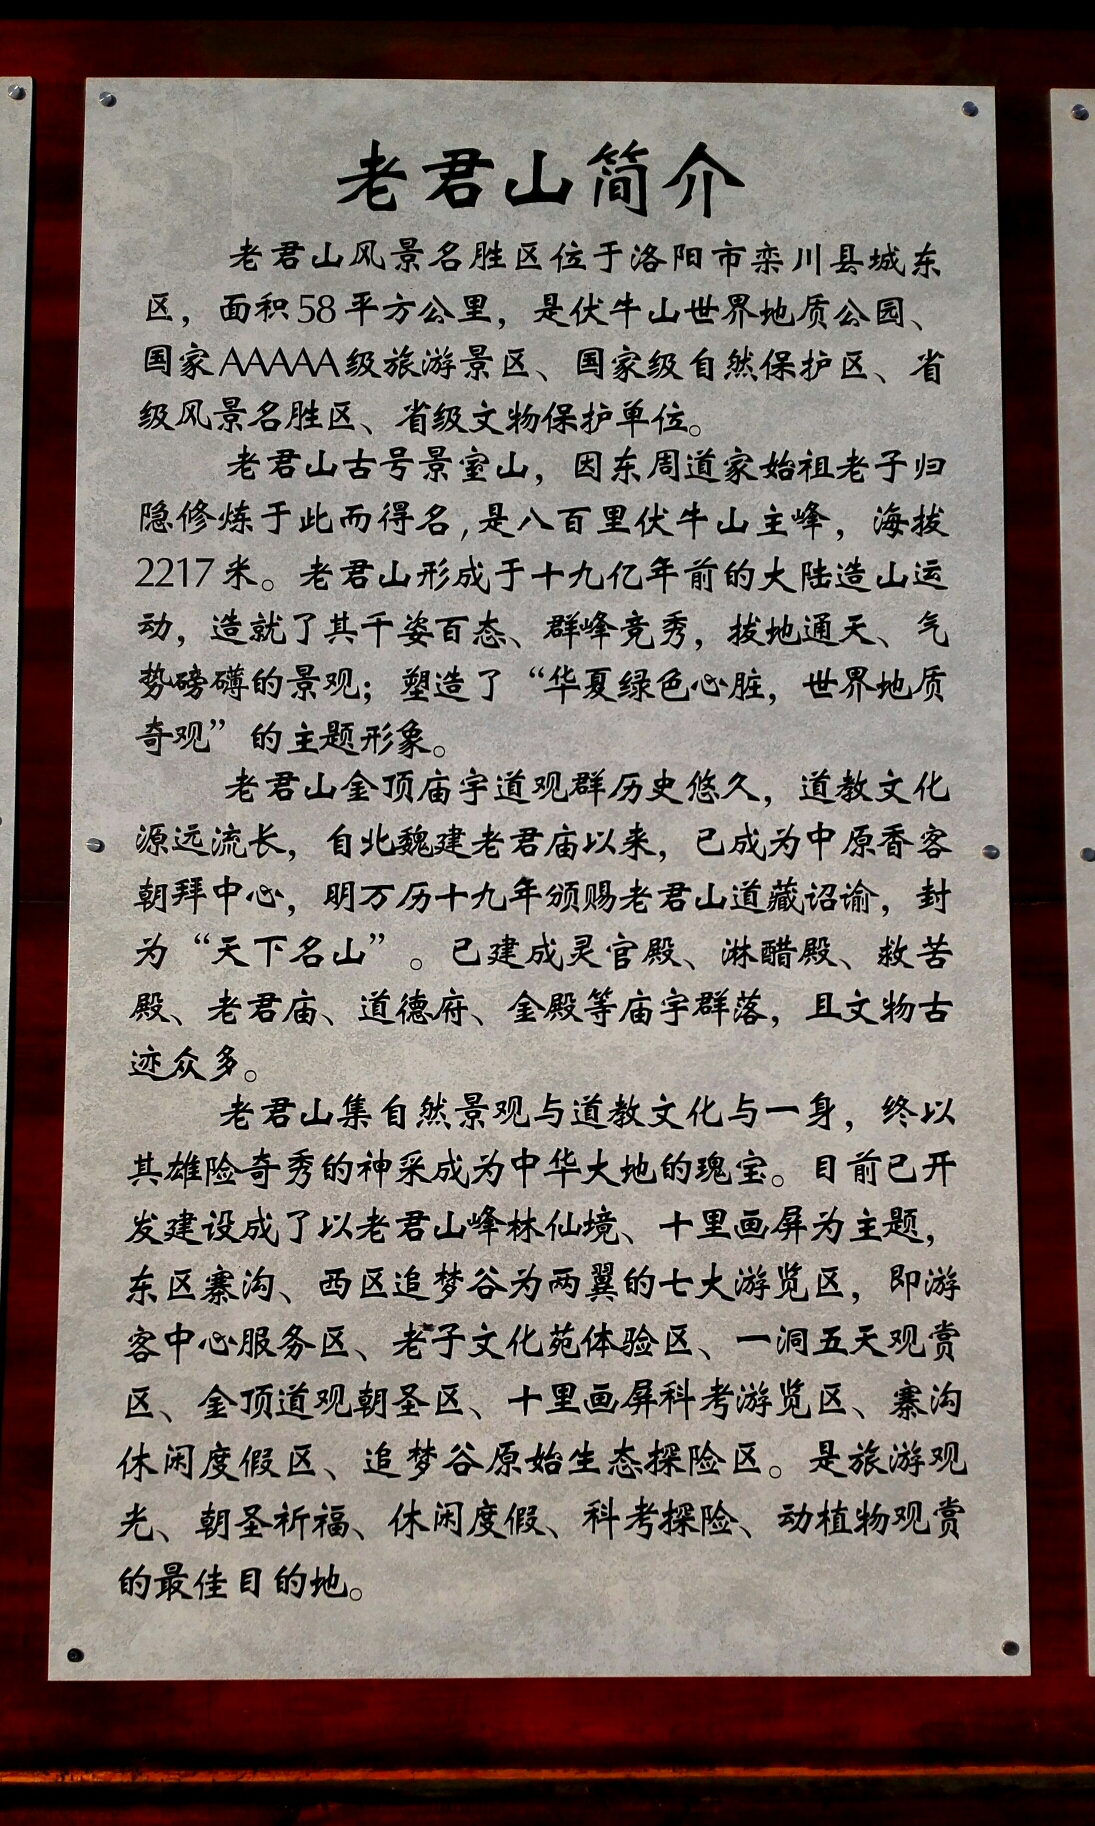 老君山简介
老君山风景名胜区位于洛阳市栾川县城东
区，面积58平方公里，是伏牛山世界地质公园、
国家AAAAA级旅游景区、国家级自然保护区、省
级风景名胜区、省级文物保护单位。
老君山古号景室山，因东周道家始祖老子归
隐修炼于此而得名,是八百里伏牛山主峰，海拔
2217米。老君山形成于十九亿年前的大陆造山运
动，造就了其千姿百态、群峰竞秀，拔地通天、气
势磅礴的景观；塑造了“华夏绿色心脏，世界地质
奇观”的主题形象。
老君山金顶庙宇道观群历史悠久，道教文化
源远流长，自北魏建老君庙以来，已成为中原香客
朝拜中心，明万历十九年颁赐老君山道藏诏谕，封
为“天下名山”。已建成灵官殿、淋醋殿、救苦
殿、老君庙、道德府、金殿等庙宇群落，且文物古
迹众多。
老君山集自然景观与道教文化与一身，终以
其雄险奇秀的神采成为中华大地的瑰宝。目前已开
发建设成了以老君山峰林仙境、十里画屏为主题，
东区寨沟、西区追梦谷为两翼的七大游览区，即游
客中心服务区、老子文化苑体验区、一洞五天观赏
区、金顶道观朝圣区、十里画屏科考游览区、寨沟
休闲度假区、追梦谷原始生态探险区。是旅游观
光、朝圣祈福、休闲度假、科考探险、动植物观赏
的最佳目的地。